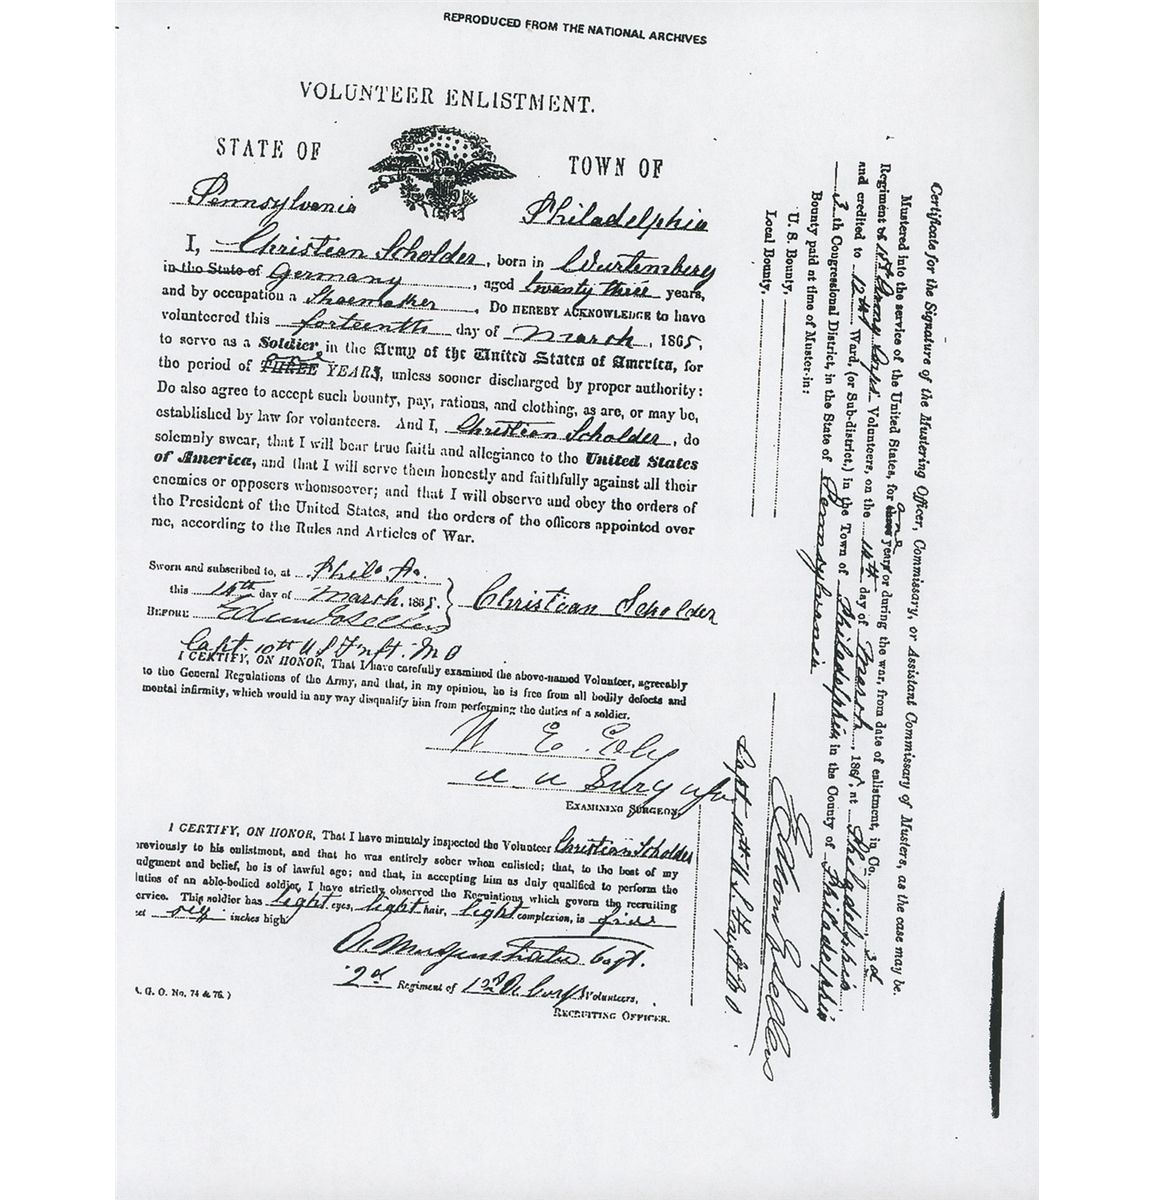 REPRODUCED FROM THE NATIONAL ARCHIVES
VOLUNTEER ENLISTMENT.
STATE OF TOWN OF
Pennsylvania Philadelphia
I, Christian Scholder, born in Wurtemberg
in the State of Germany, aged twenty three years,
and by occupation a Shoemaker, Do HEREBY ACKNOWLEDGE to have
volunteered this forteenth day of March, 1865,
to serve as a Soldier in the Army of the United States of America, for
the period of THREE YEARS, unless sooner discharged by proper authority:
Do also agree to accept such bounty, pay, rations, and clothing, as are, or may be,
established by law for volunteers. And I, Christian Scholder, do
solemnly swear, that I will bear true faith and allegiance to the United States
of America, and that I will serve them honestly and faithfully against all their
enemies or opposers whomsoever; and that I will observe and obey the orders of
the President of the United States, and the orders of the officers appointed over
me, according to the Rules and Articles of War.
Sworn and subscribed to, at Phila Pa.
this 14th day of March, 1865. Christian Scholder
BEFORE
Capt. 10th U S Inft. M O
I CERTIFY, ON HONOR, That I have carefully examined the above-named Volunteer, agreeably
to the General Regulations of the Army, and that, in my opinion, he is free from all bodily defects and
mental infirmity, which would in any way disqualify him from performing the duties of a soldier.
EXAMINING SURGEON.
I CERTIFY, ON HONOR, That I have minutely inspected the Volunteer Christian Scholder
previously to his enlistment, and that he was entirely sober when enlisted; that, to the best of my
udgment and belief, he is of lawful age; and that, in accepting him as duly qualified to perform the
luties of an able-bodied soldier, I have strictly observed the Regulations which govern the recruiting
ervice. This soldier has light eyes, light hair, light complexion, is five
et six inches high.
Capt.
2d Regiment of 1st A Corps Volunteers,
RECRUITING OFFICER.
G. O. No. 74 & 76.)
Certificate for the Signature of the Mustering Officer, Commissary, or Assistant Commissary of Musters, as the case may be.
Mustered into the service of the United States, for three one years or during the war, from date of enlistment, in Co. , 3d
Regiment of 1st Army Corps Volunteers, on the 14th day of March, 1865, at Philadelphia
and credited to 12th Ward, (or Sub-district,) in the Town of Philadelphia in the County of Philadelphia
3th Congressional District, in the State of Pennsylvania
Bounty paid at time of Muster-in:
U. S. Bounty,
Local Bounty,
Capt 10th U S Inft M O.